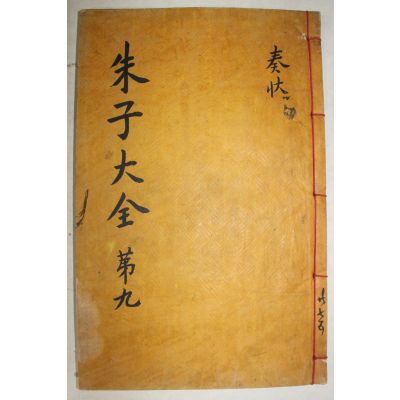 朱子大全 第九
奏状